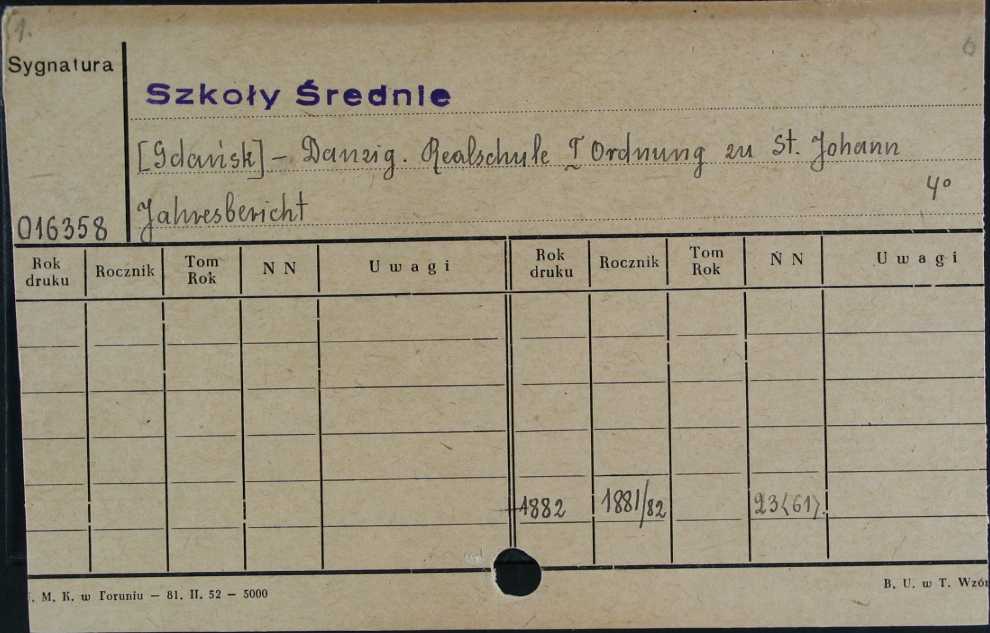 1.
6
Sygnatura
Szkoły Średnie
[Gdańsk] – Danzig. Realschule I Ordnung zu St. Johann
4°
016358
Jahresbericht
Rok druku Rocznik Tom Rok N N Uwagi Rok druku Rocznik Tom Rok N N Uwagi
1882 1881/82 23<61>.
M. K. w Toruniu — 81. II. 52 — 5000
B. U. w T. Wzór